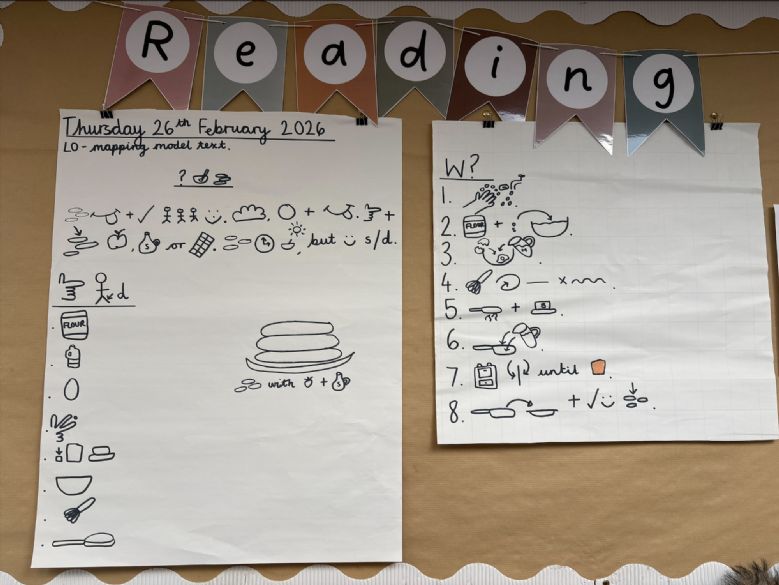 Reading
Thursday 26th February 2026
LO - mapping model text.
?
+ ✓ . . + . +
. S or . 2 , but s/d.
d
FLOUR
with + S
3
W?
1.
2. FLOUR + : .
3.
4. — x
5. + B
6. .
7. until .
8. + ✓ .